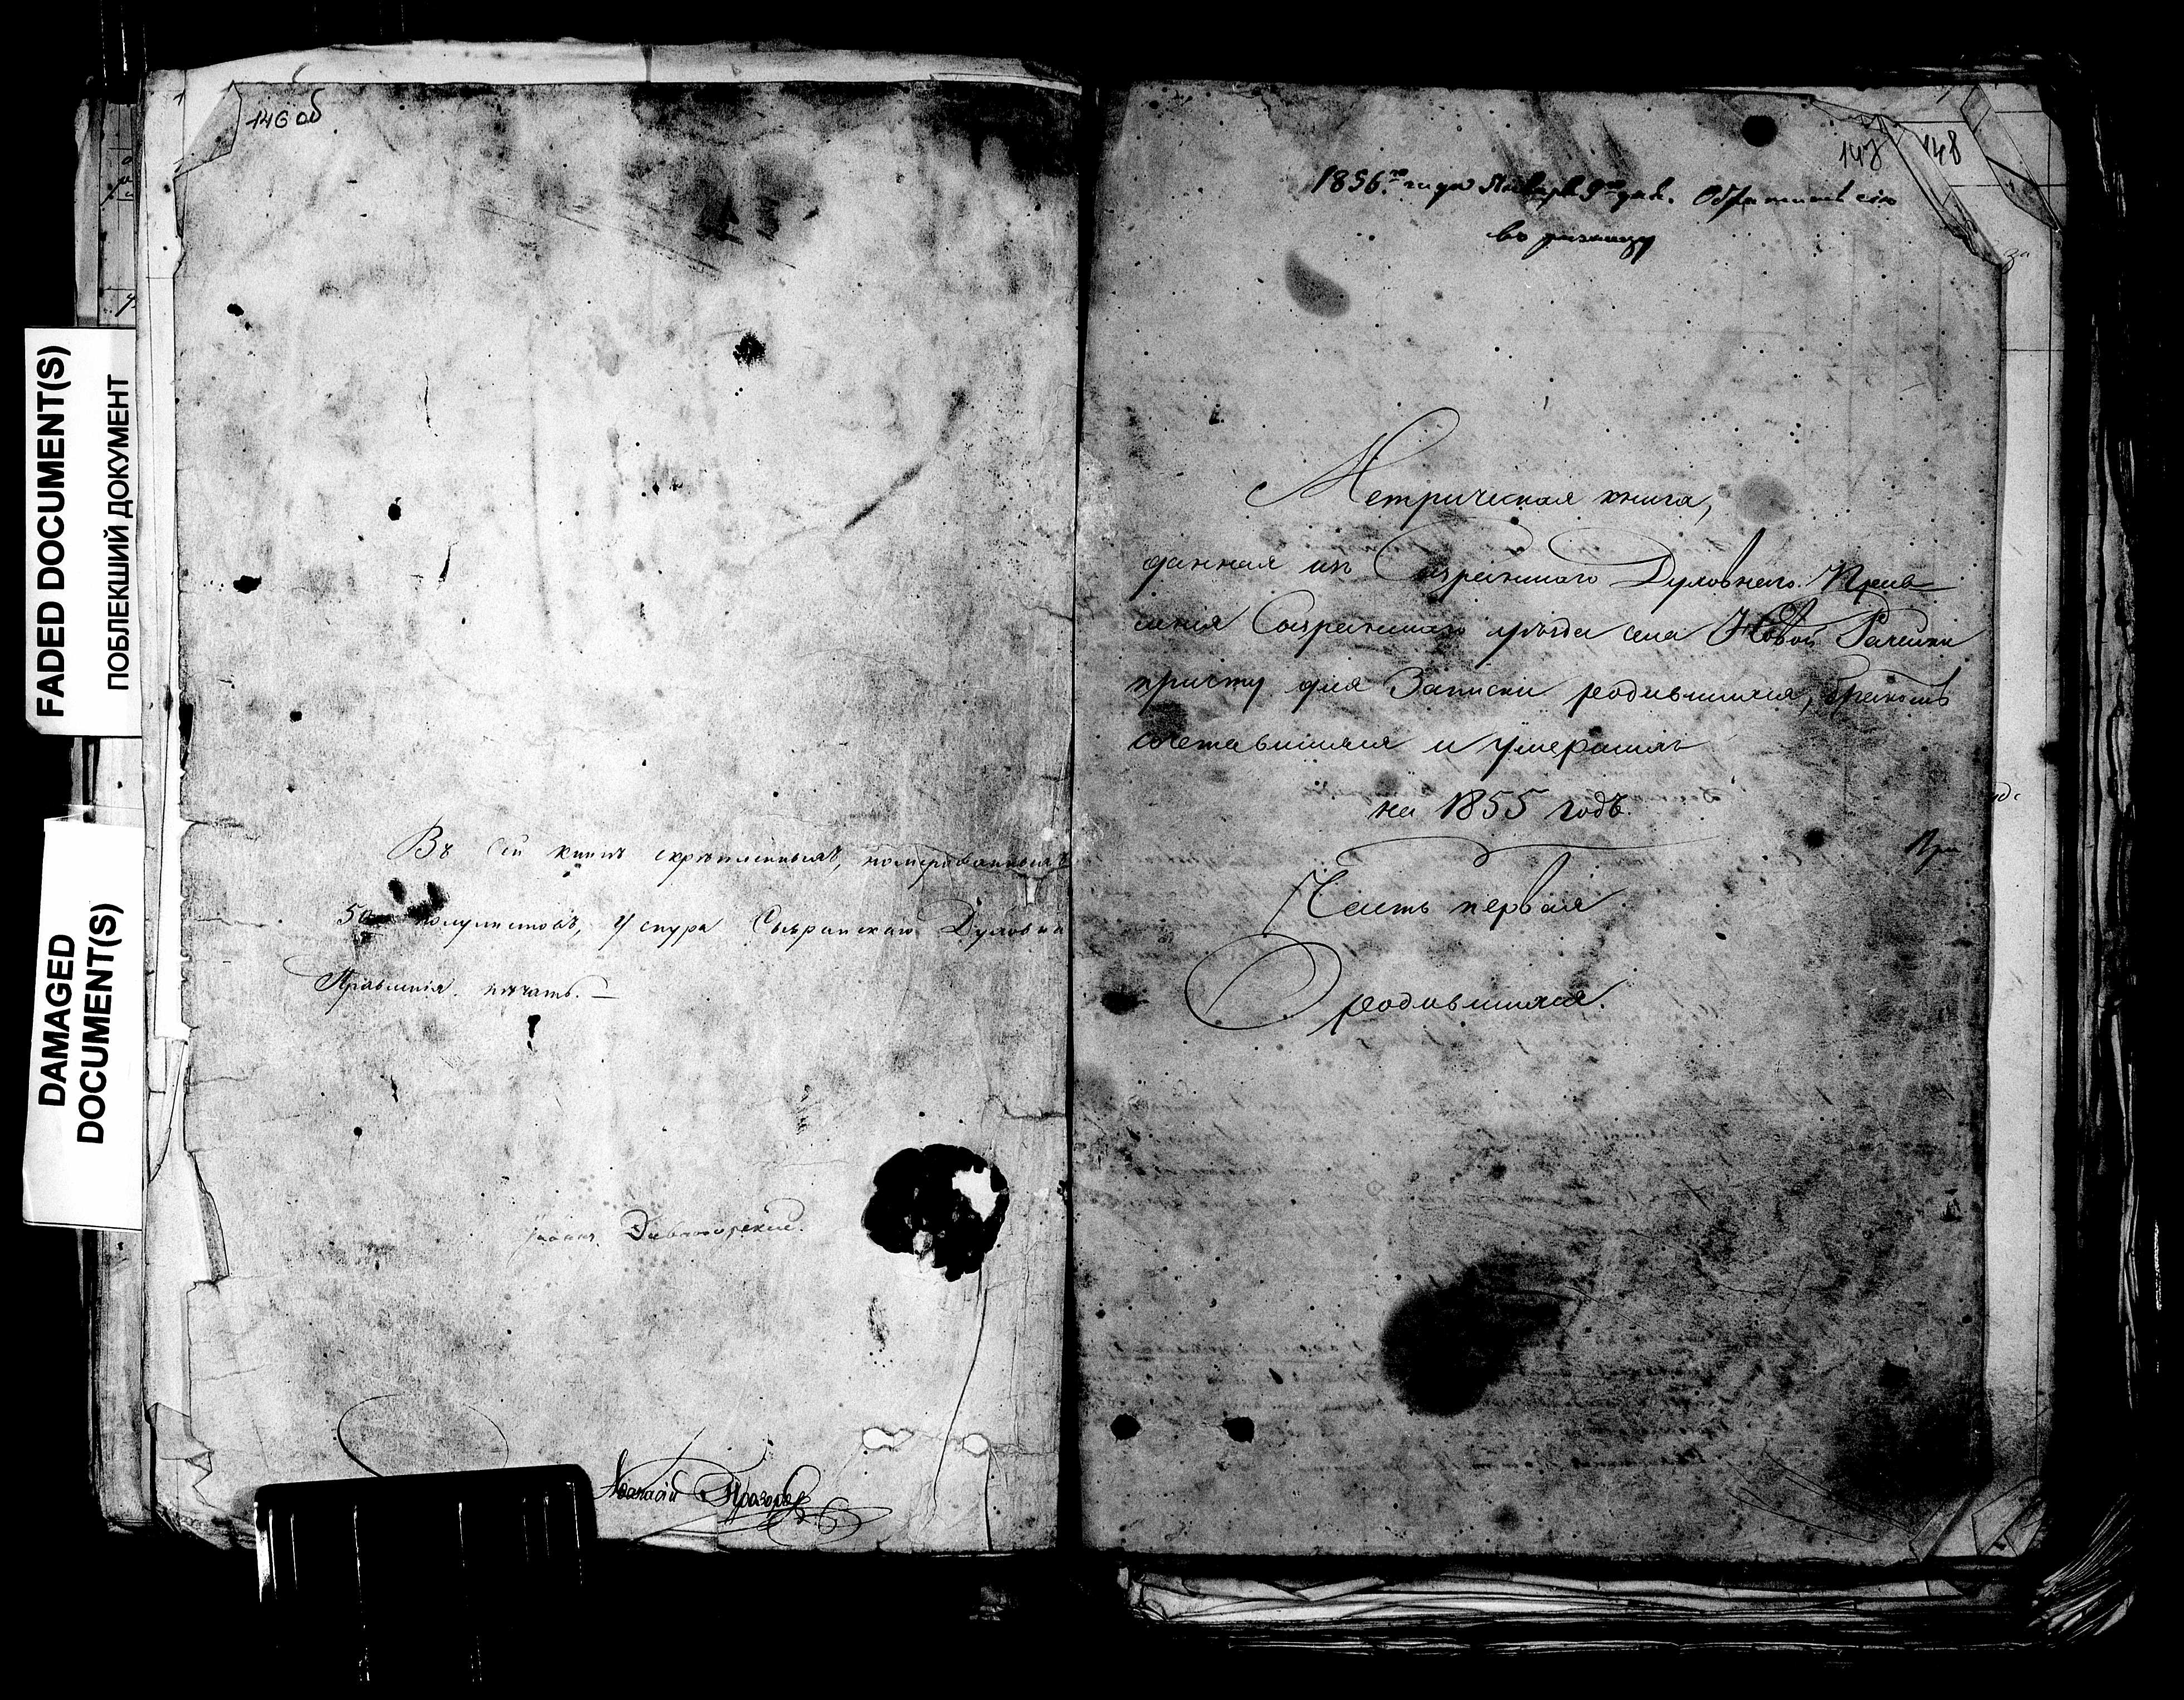 FADED DOCUMENT(S)
ПОБЛЕКШИЙ ДОКУМЕНТ
DAMAGED
DOCUMENT(S)
146 об
Въ сей книгѣ скрѣпленныхъ, номерованныхъ
полулистовъ, У снура Сызранскаго Духовна
Правленія печать.
Дивногорскій.
Аѳанасій Прозоров
147 148
1856.го года Января 9го дня. Обратить сію
въ ризницу
Метрическая книга,
данная изъ Сызранскаго Духовнаго Прав-
ленія Сызранскаго уѣзда села Новой Рачейки
причту для Записки родившихся, бракомъ
сочетавшихся и умершихъ
на 1855 годъ.
Часть первая
О родившихся.
При